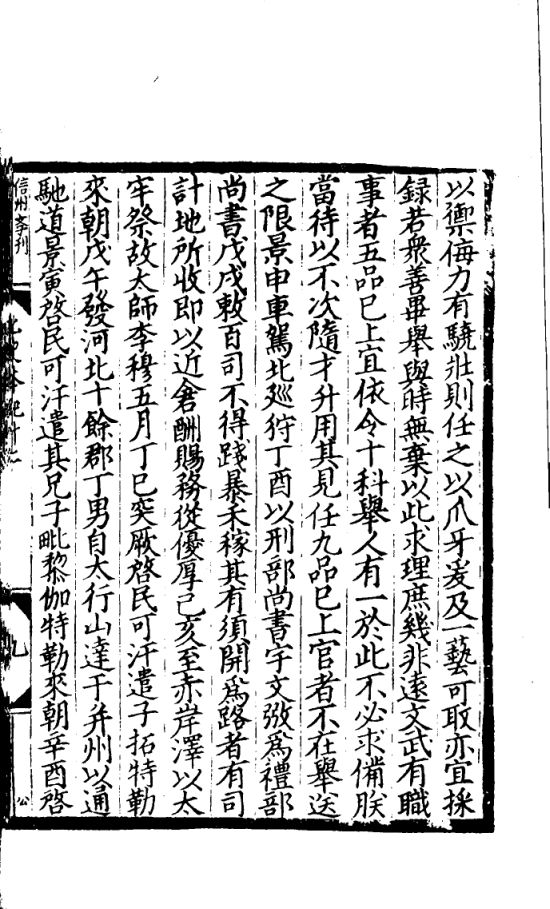 以禦侮力有驍壯則任之以爪牙爰及一藝可取亦宜採
録若衆善畢舉與時無棄以此求理庶幾非遠文武有職
事者五品已上宜依令十科舉人有一於此不必求備朕
當待以不次隨才升用其見任九品已上官者不在舉送
之限景申車駕北廵狩丁酉以刑部尚書宇文㢸爲禮部
尚書戊戌敕百司不得踐暴禾稼其有須開爲路者有司
計地所收即以近倉酬賜務從優厚己亥至赤岸澤以太
牢祭故太師李穆五月丁巳突厥啓民可汗遣子拓特勒
來朝戊午發河北十餘郡丁男自太行山達于并州以通
馳道景寅啓民可汗遣其兄子毗黎伽特勒來朝辛酉啓
信州學刊
九
公